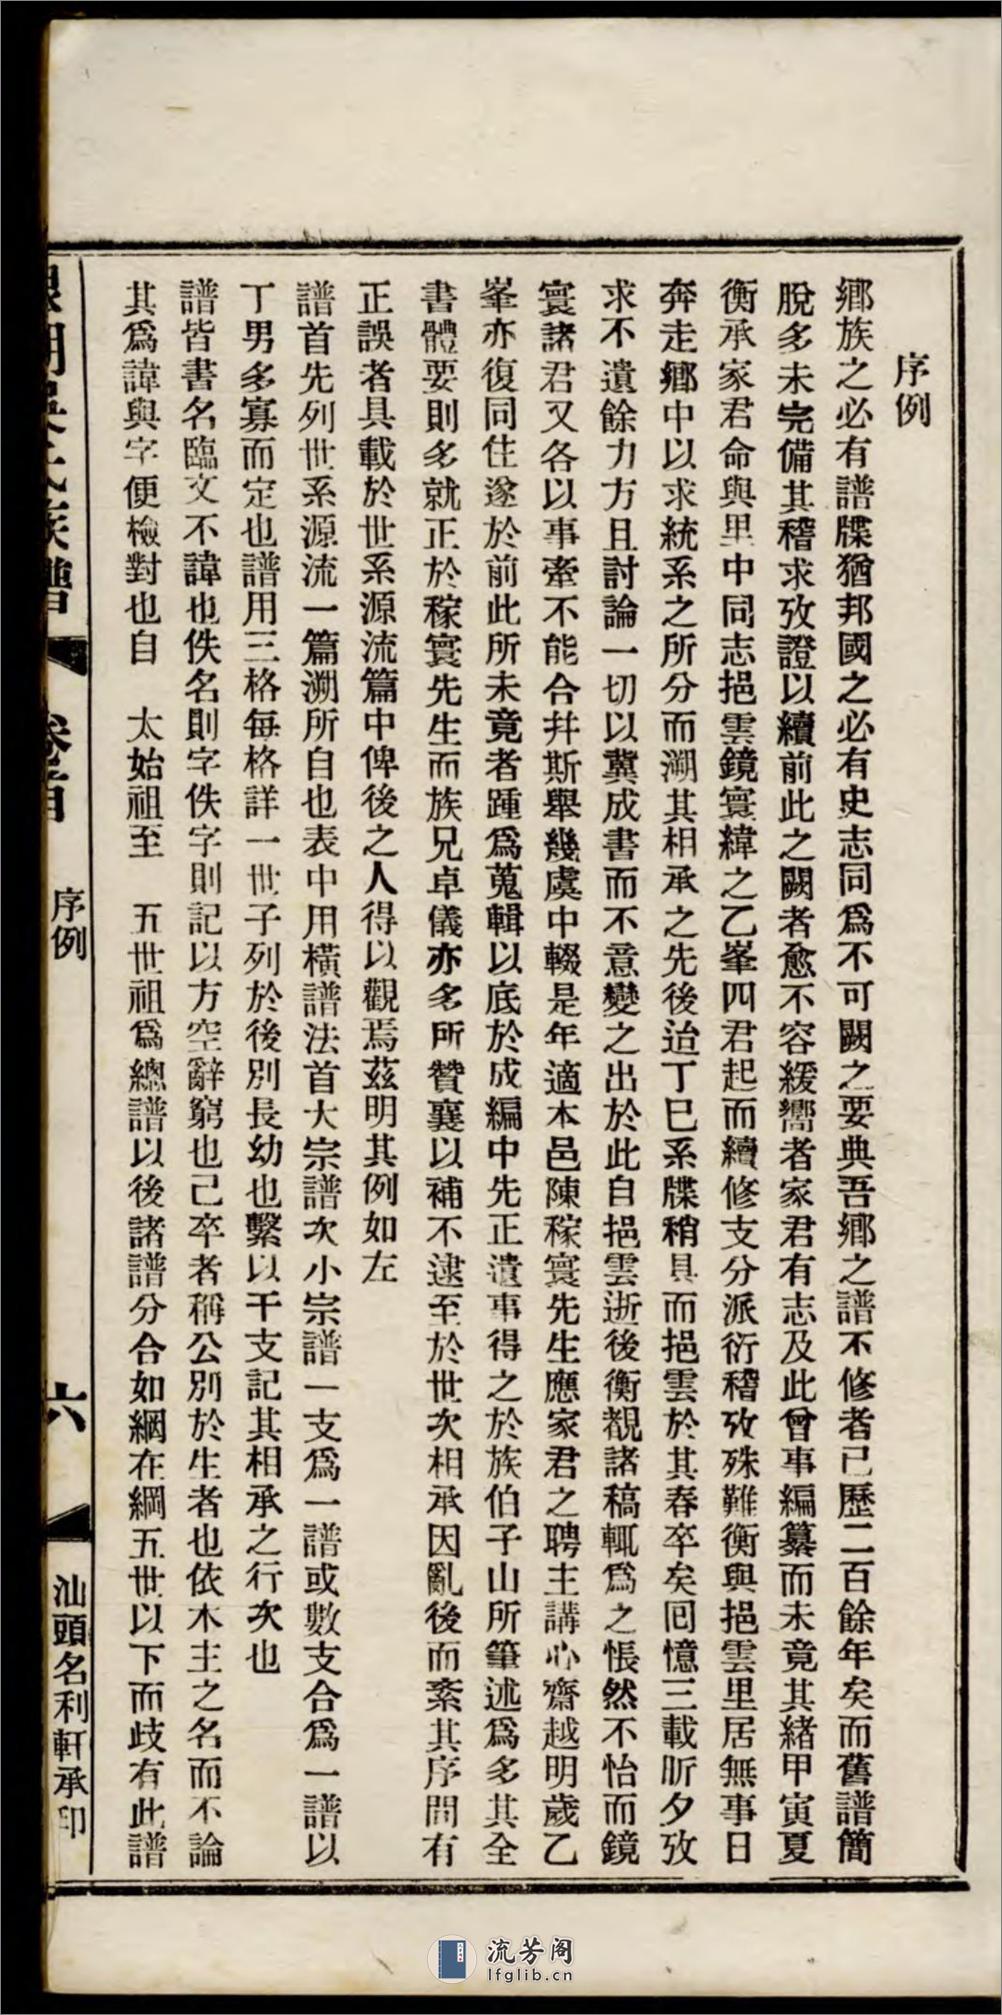 序例
鄉族之必有譜牒猶邦國之必有史志同爲不可闕之要典吾鄉之譜不修者已歷二百餘年矣而舊譜簡
脫多未完備其稽求攷證以續前此之闕者愈不容緩嚮者家君有志及此曾事編纂而未竟其緒甲寅夏
衡承家君命與里中同志挹雲鏡寰緯之乙峯四君起而續修支分派衍稽攷殊難衡與挹雲里居無事日
奔走鄉中以求統系之所分而溯其相承之先後迨丁巳系牒稍具而挹雲於其春卒矣囘憶三載昕夕攷
求不遺餘力方且討論一切以冀成書而不意變之出於此自挹雲逝後衡覩諸稿輒爲之悵然不怡而鏡
寰諸君又各以事牽不能合幷斯舉幾虞中輟是年適本邑陳稼寰先生應家君之聘主講心齋越明歲乙
峯亦復同住遂於前此所未竟者踵爲蒐輯以底於成編中先正遺事得之於族伯子山所筆述爲多其全
書體要則多就正於稼寰先生而族兄卓儀亦多所贊襄以補不逮至於世次相承因亂後而紊其序間有
正誤者具載於世系源流篇中俾後之人得以觀焉茲明其例如左
譜首先列世系源流一篇溯所自也表中用橫譜法首大宗譜次小宗譜一支爲一譜或數支合爲一譜以
丁男多寡而定也譜用三格每格詳一世子列於後別長幼也繫以干支記其相承之行次也
譜皆書名臨文不諱也佚名則字佚字則記以方空辭窮也己卒者稱公別於生者也依木主之名而不論
其爲諱與字便檢對也自　太始祖至　五世祖爲總譜以後諸譜分合如網在綱五世以下而歧有此譜
族譜
卷首
序例
六
汕頭名利軒承印
流芳阁
lfglib.cn